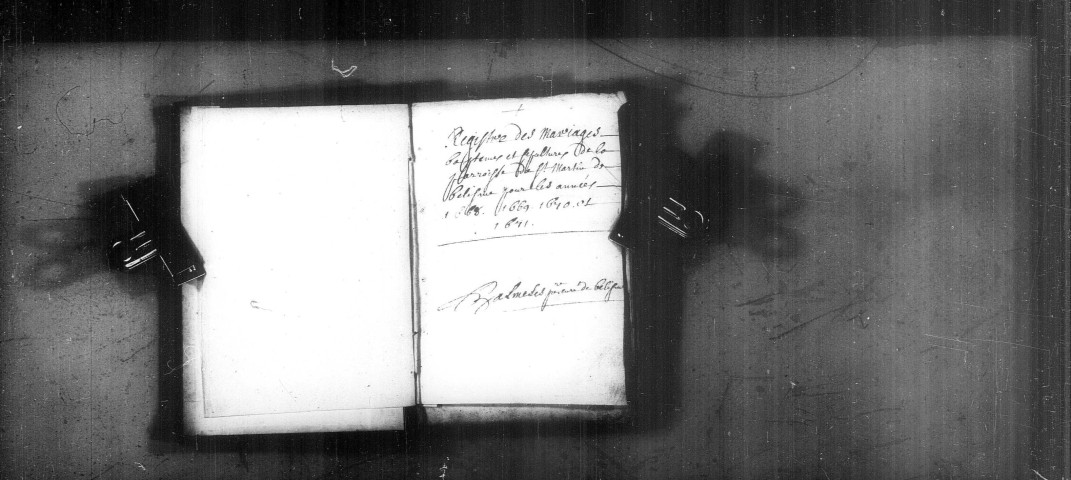 Registre des Mariages
baptemes et sepultures De la
parroisse De St Martin de
beligne pour les années
1668. 1669. 1670. et
1671.
de